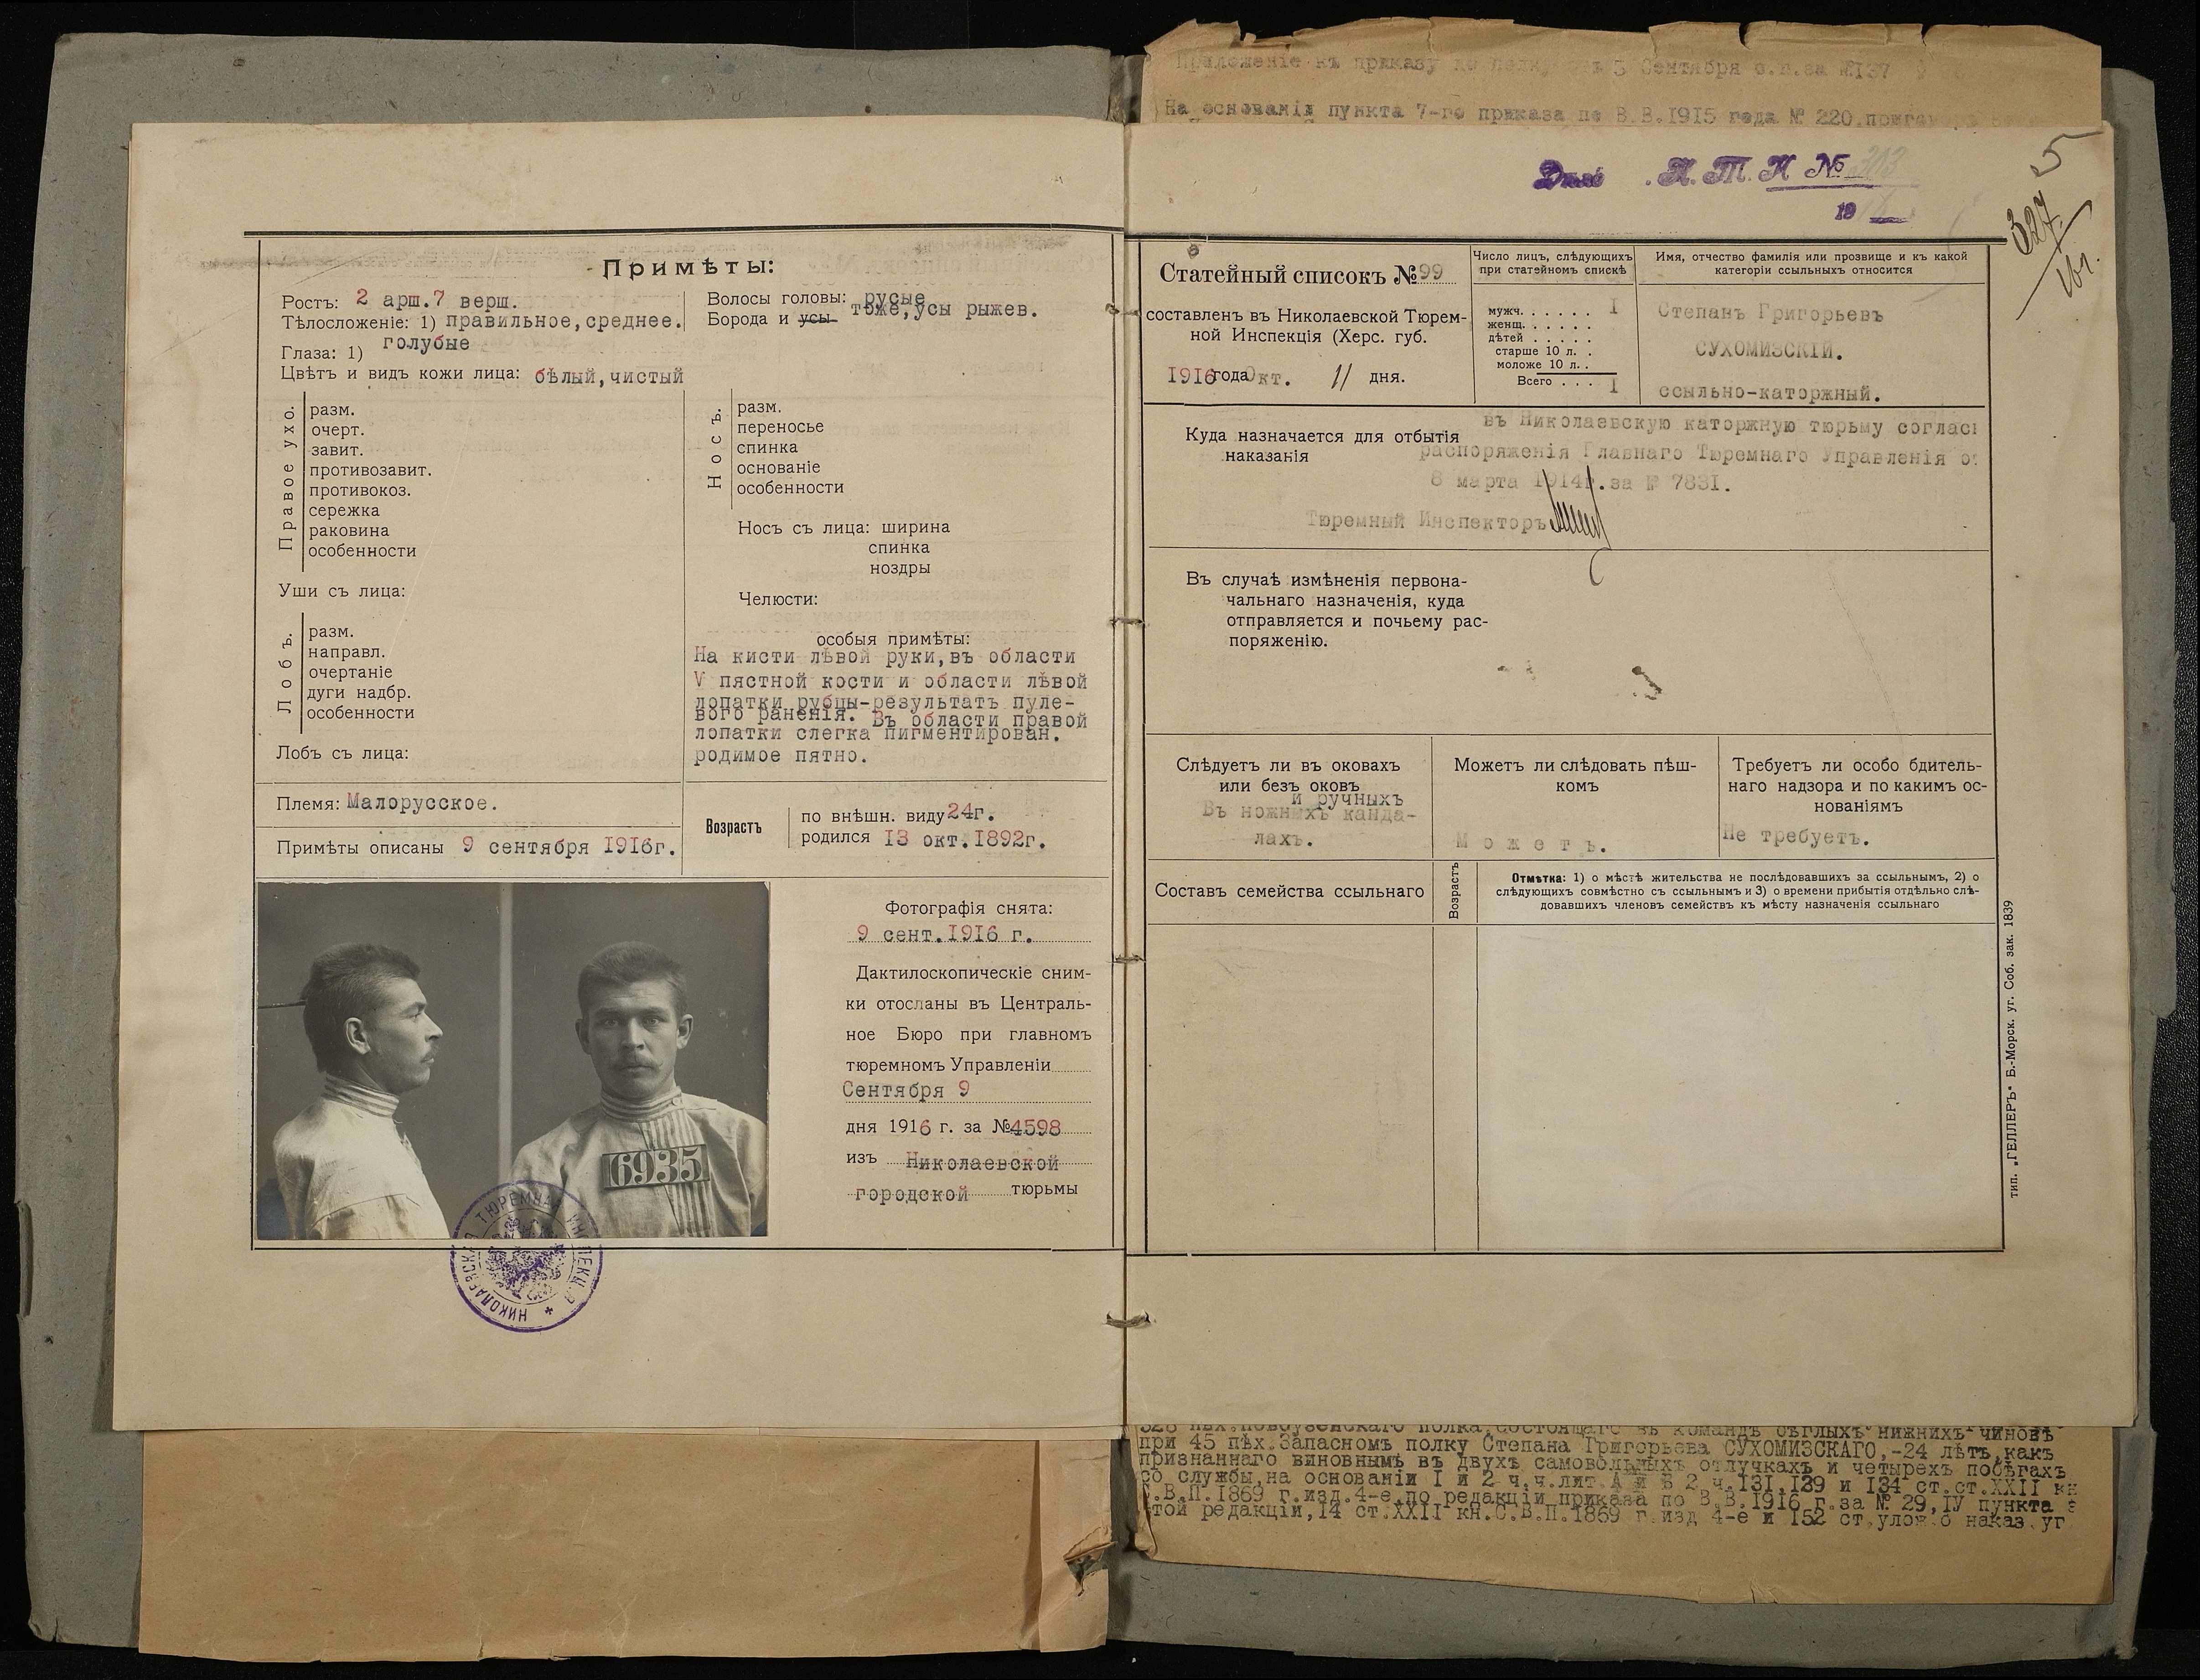 Примѣты:
Ростъ: 2 арш. 7 верш.
Тѣлосложеніе: 1) правильное, среднее.
Глаза: 1) голубые
Цвѣтъ и видъ кожи лица: бѣлый, чистый
Волосы головы: русые
Борода и усы тоже, усы рыжев.
Правое ухо.
разм.
очерт.
завит.
противозавит.
противокоз.
сережка
раковина
особенности
Уши съ лица:
Лобъ.
разм.
направл.
очертаніе
дуги надбр.
особенности
Лобъ съ лица:
Носъ.
разм.
переносье
спинка
основаніе
особенности
Носъ съ лица: ширина
спинка
ноздри
Челюсти:
особыя примѣты:
На кисти лѣвой руки, въ области
V пястной кости и области лѣвой
лопатки рубцы-результатъ пуле-
вого раненія. Въ области правой
лопатки слегка пигментирован.
родимое пятно.
Племя: Малорусское.
Примѣты описаны 9 сентября 1916г.
Возрастъ
по внѣшн. виду 24г.
родился 13 окт. 1892г.
6935
НИКОЛАЕВСКАЯ ТЮРЕМНАЯ ИНСПЕКЦІЯ
Фотографія снята:
9 сент. 1916 г.
Дактилоскопическіе сним-
ки отосланы въ Централь-
ное Бюро при главномъ
тюремномъ Управленіи
Сентября 9
дня 1916 г. за № 4598
изъ Николаевской
городской тюрьмы
Приложеніе къ приказу по полку 3 Сентября с.г. за №137
На основаніи пункта 7-го приказа по В.В. 1915 года № 220
Дѣло Н. Т. И №
19
5
327
Статейный списокъ № 99
составленъ въ Николаевской Тюрем-
ной Инспекція (Херс. губ.
1916 года Окт. 11 дня.
Число лицъ, слѣдующихъ
при статейномъ спискѣ
мужч. . . . . . I
женщ. . . . . .
дѣтей . . . . .
старше 10 л. . .
моложе 10 л. . .
Всего . . . I
Имя, отчество фамилія или прозвище и къ какой
категоріи ссыльныхъ относится
Степанъ Григорьевъ
СУХОМИЗСКІЙ.
ссыльно-каторжный.
Куда назначается для отбытія
наказанія
въ Николаевскую каторжную тюрьму соглас
распоряженія Главнаго Тюремнаго Управленія о
8 марта 1914г. за № 7831.
Тюремный Инспекторъ
Въ случаѣ измѣненія первона-
чальнаго назначенія, куда
отправляется и почьему рас-
поряженію.
Слѣдуетъ ли въ оковахъ
или безъ оковъ
и ручныхъ
Въ ножныхъ канда-
лахъ.
Можетъ ли слѣдовать пѣш-
комъ
Можетъ.
Требуетъ ли особо бдитель-
наго надзора и по какимъ ос-
нованіямъ
Не требуетъ.
Составъ семейства ссыльнаго
Возрастъ
Отмѣтка: 1) о мѣстѣ жительства не послѣдовавшихъ за ссыльнымъ, 2) о
слѣдующихъ совмѣстно съ ссыльнымъ и 3) о времени прибытія отдѣльно слѣ-
довавшихъ членовъ семействъ къ мѣсту назначенія ссыльнаго
тип. „ГЕЛЛЕРЪ“ Б.-Морск. уг. Соб. зак. 1839
328 пѣх. Новоузенскаго полка, состоящаго въ командѣ бѣглыхъ нижнихъ чиновъ
при 45 пѣх. Запасномъ полку Степана Григорьева СУХОМИЗСКАГО,-24 лѣтъ, какъ
признаннаго виновнымъ въ двухъ самовольныхъ отлучкахъ и четырехъ побѣгахъ
со службы, на основаніи I и 2 ч.ч. лит. А и В 2 ч. 131, 139 и 134 ст.ст. XXII кн
С.В.П. 1869 г. изд. 4-е по редакціи приказа по В.В. 1916 г. за № 29, IV пункта
той редакціи, 14 ст. XXII кн. С.В.П. 1869 г. изд 4-е и 152 ст. улож. о наказ. уг